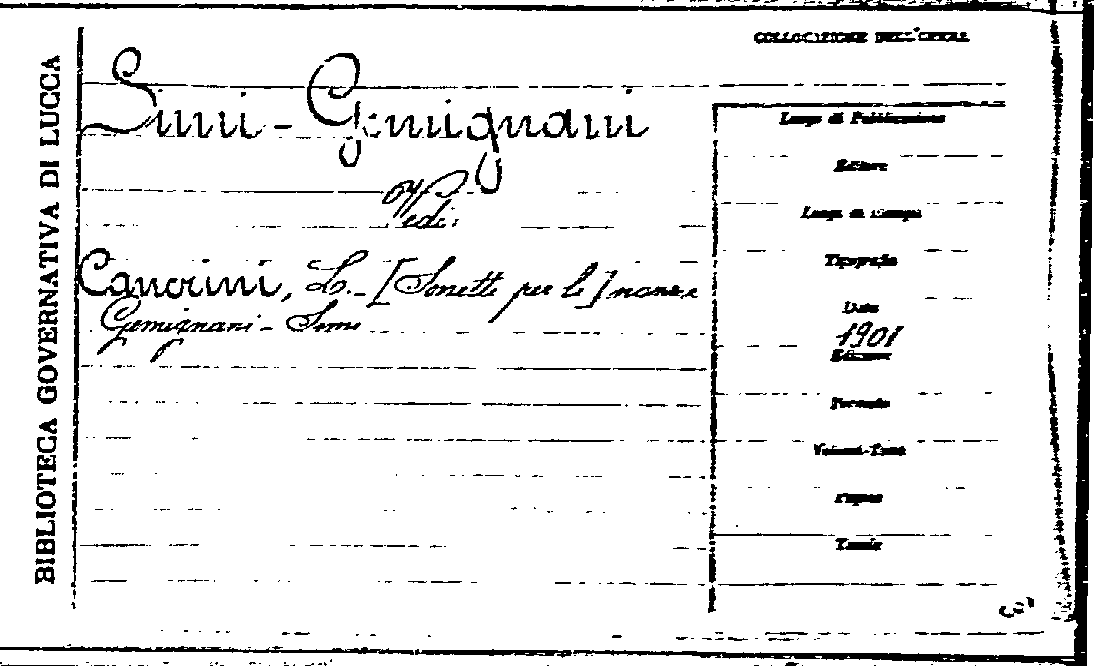 BIBLIOTECA GOVERNATIVA DI LUCCA
COLLOCAZIONE DELL'OPERA
Simi-Gemignani
vedi:
Canorini, L. - [Sonetto per le] nozze
Gemignani-Simi
Luogo di Pubblicazione
Editore
Luogo di stampa
Tipografia
Data
1901
Edizione
Formato
Volumi-Tomi
Pagine
Tavole